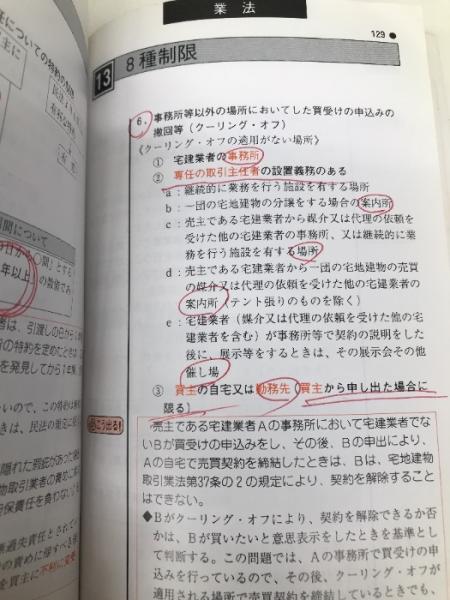 業法
129
13 8種制限
6. 事務所等以外の場所においてした買受けの申込みの
撤回等（クーリング・オフ）
《クーリング・オフの適用がない場所》
① 宅建業者の事務所
② 専任の取引主任者の設置義務のある
a：継続的に業務を行う施設を有する場所
b：一団の宅地建物の分譲をする場合の案内所
c：売主である宅建業者から媒介又は代理の依頼を
受けた他の宅建業者の事務所、又は継続的に業
務を行う施設を有する場所
d：売主である宅建業者から一団の宅地建物の売買
の媒介又は代理の依頼を受けた他の宅建業者の
案内所（テント張りのものを除く）
e：宅建業者（媒介又は代理の依頼を受けた他の宅
建業者を含む）が事務所等で契約の説明をした
後に、展示等をするときは、その展示会その他
催し場
③ 買主の自宅又は勤務先〔買主から申し出た場合に
限る〕
こう出る！
売主である宅建業者Aの事務所において宅建業者でな
いBが買受けの申込みをし、その後、Bの申出により、
Aの自宅で売買契約を締結したときは、Bは、宅地建物
取引業法第37条の2の規定により、契約を解除すること
はできない。
◆Bがクーリング・オフにより、契約を解除できるか否
かは、Bが買いたいと意思表示をしたときを基準とし
て判断する。この問題では、Aの事務所で買受けの申
込みを行っているので、その後、クーリング・オフが
適用される場所で売買契約を締結しているときでも、